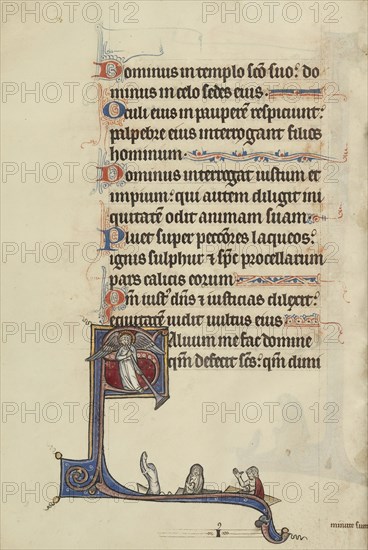 Dominus in templo sc̄o suo: do
minus in celo sedes eius.
Oculi eius in pauperē respiciunt:
palpebre eius interrogant filios
hominum.
Dominus interrogat iustum et
impium: qui autem diligit ini
quitatē odit animam suam.
Pluet super pecc̄ores laqueos:
ignis sulphur ⁊ sp̄c procellarum
pars calicis eorum
Qm̄ iust᷒ dn̄s ⁊ iusticias dilexit:
equitatē uidit uultus eius
Saluum me fac domine
qm̄ defecit sc̄s: qm̄ dimi
minute sunt
PHOTO 12